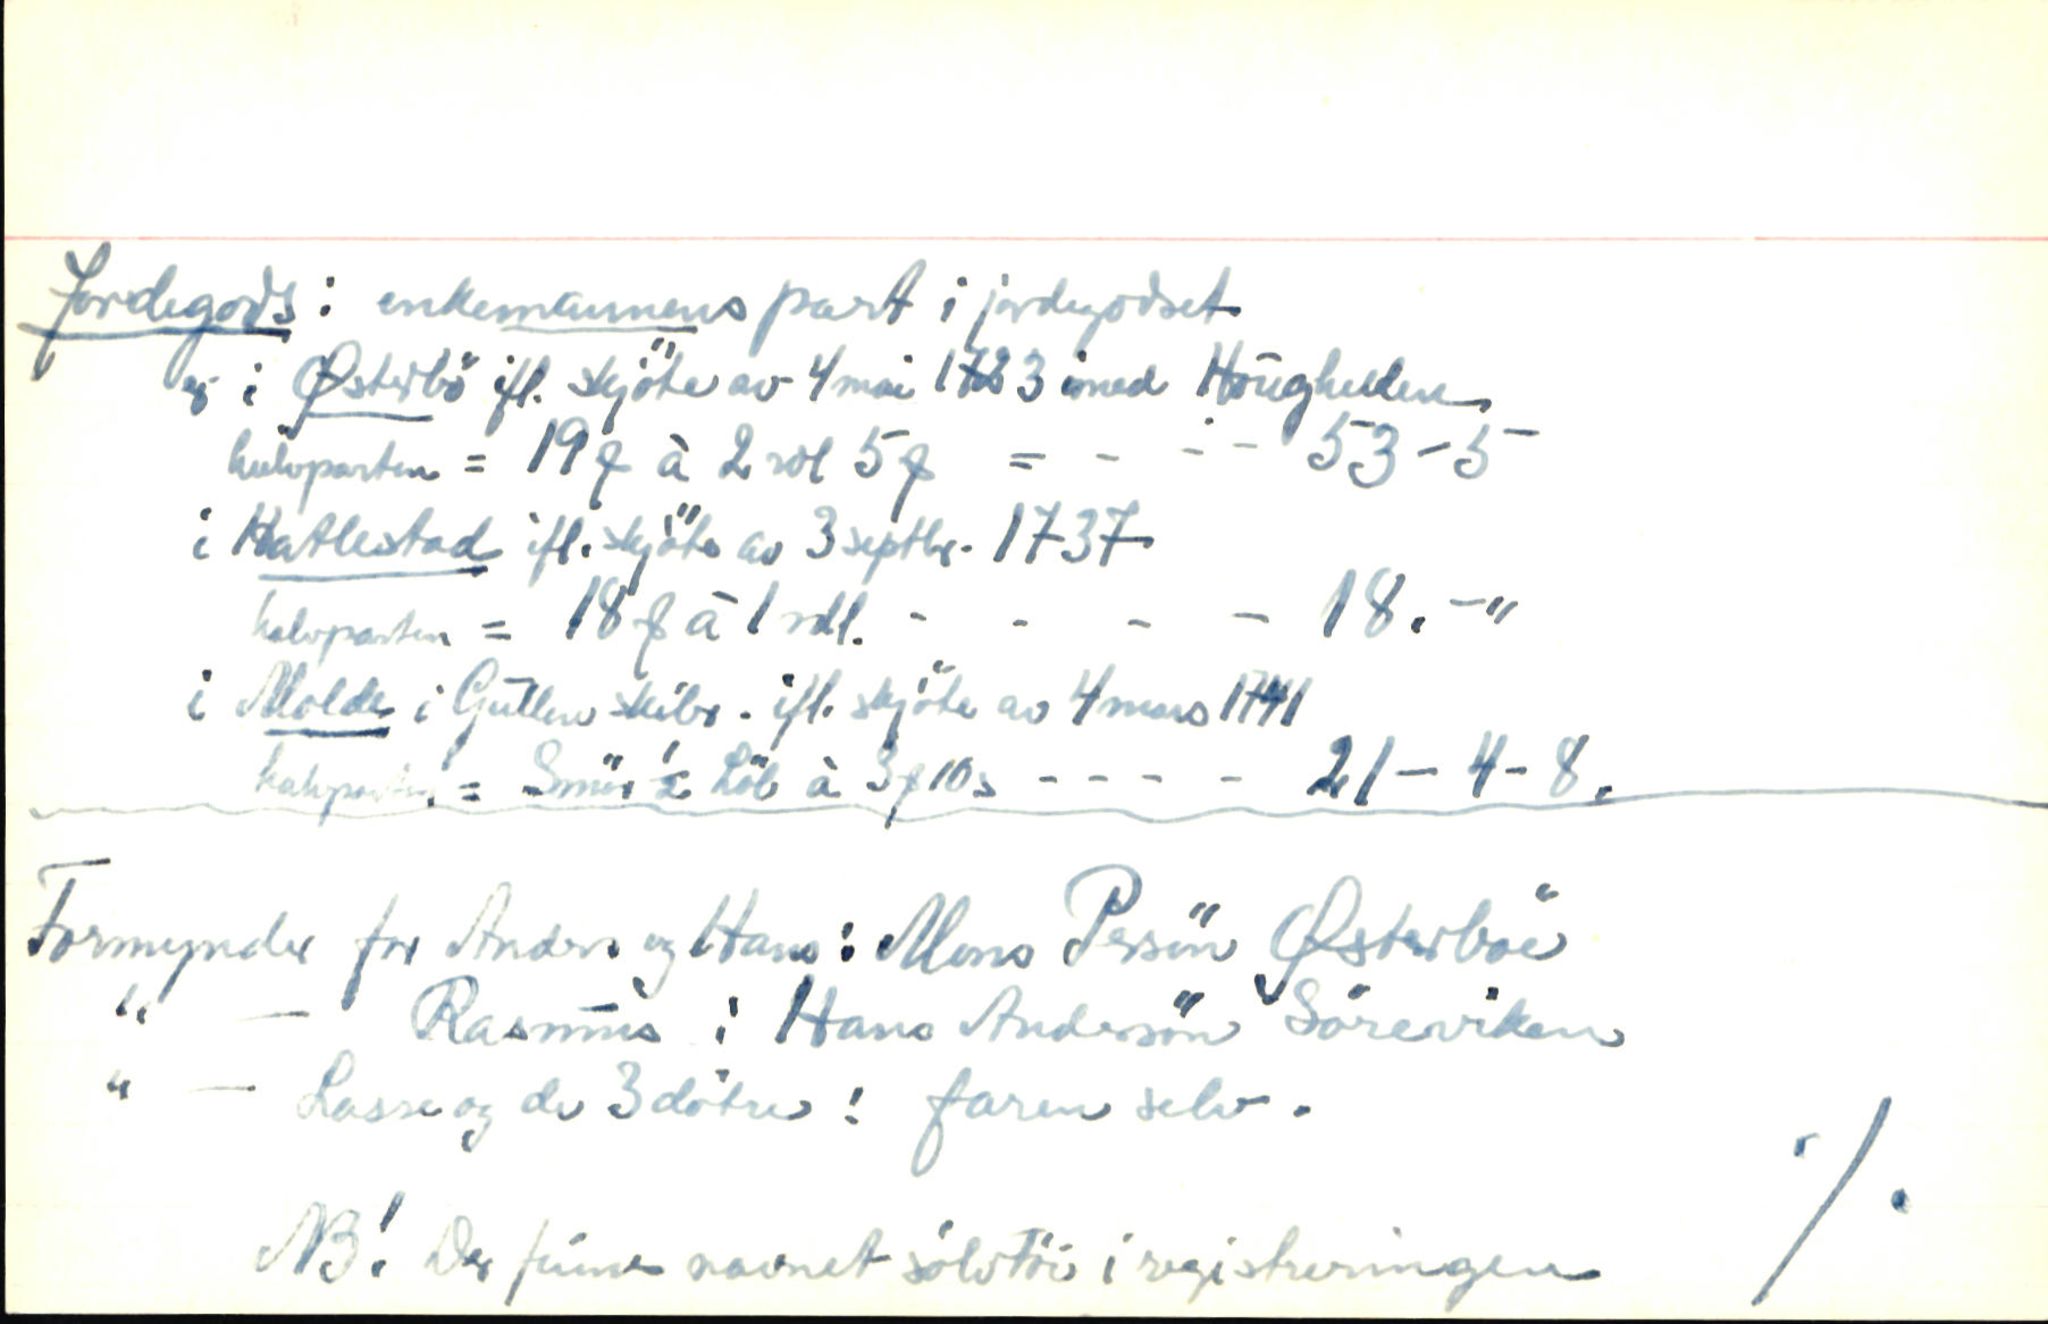 Jordegods: enkemannens part i jordegodset
i Østerbö ifl. skjöte av 4 mai 1723 med Höugheden
halvparten = 19 f à 2 rdl 5 f = - - - 53 - 5 -
i Hatlestad ifl. skjöte av 3 septbr. 1737
halvparten = 18 f à 1 rdl. - - - - 18. - "
i Molde i Gullen skibr. ifl. skjöte av 4 mars 1741
halvparten = Smör ½ Löb à 3 f 10 s - - - - 21 - 4 - 8.
Formynder for Anders og Hans: Mons Persön Østerböe
" — Rasmus : Hans Andersön Söreviken
" — Lasse og de 3 dötre : faren selv.
NB! Der finnes navnet sölvtöi i registreringen
·/.